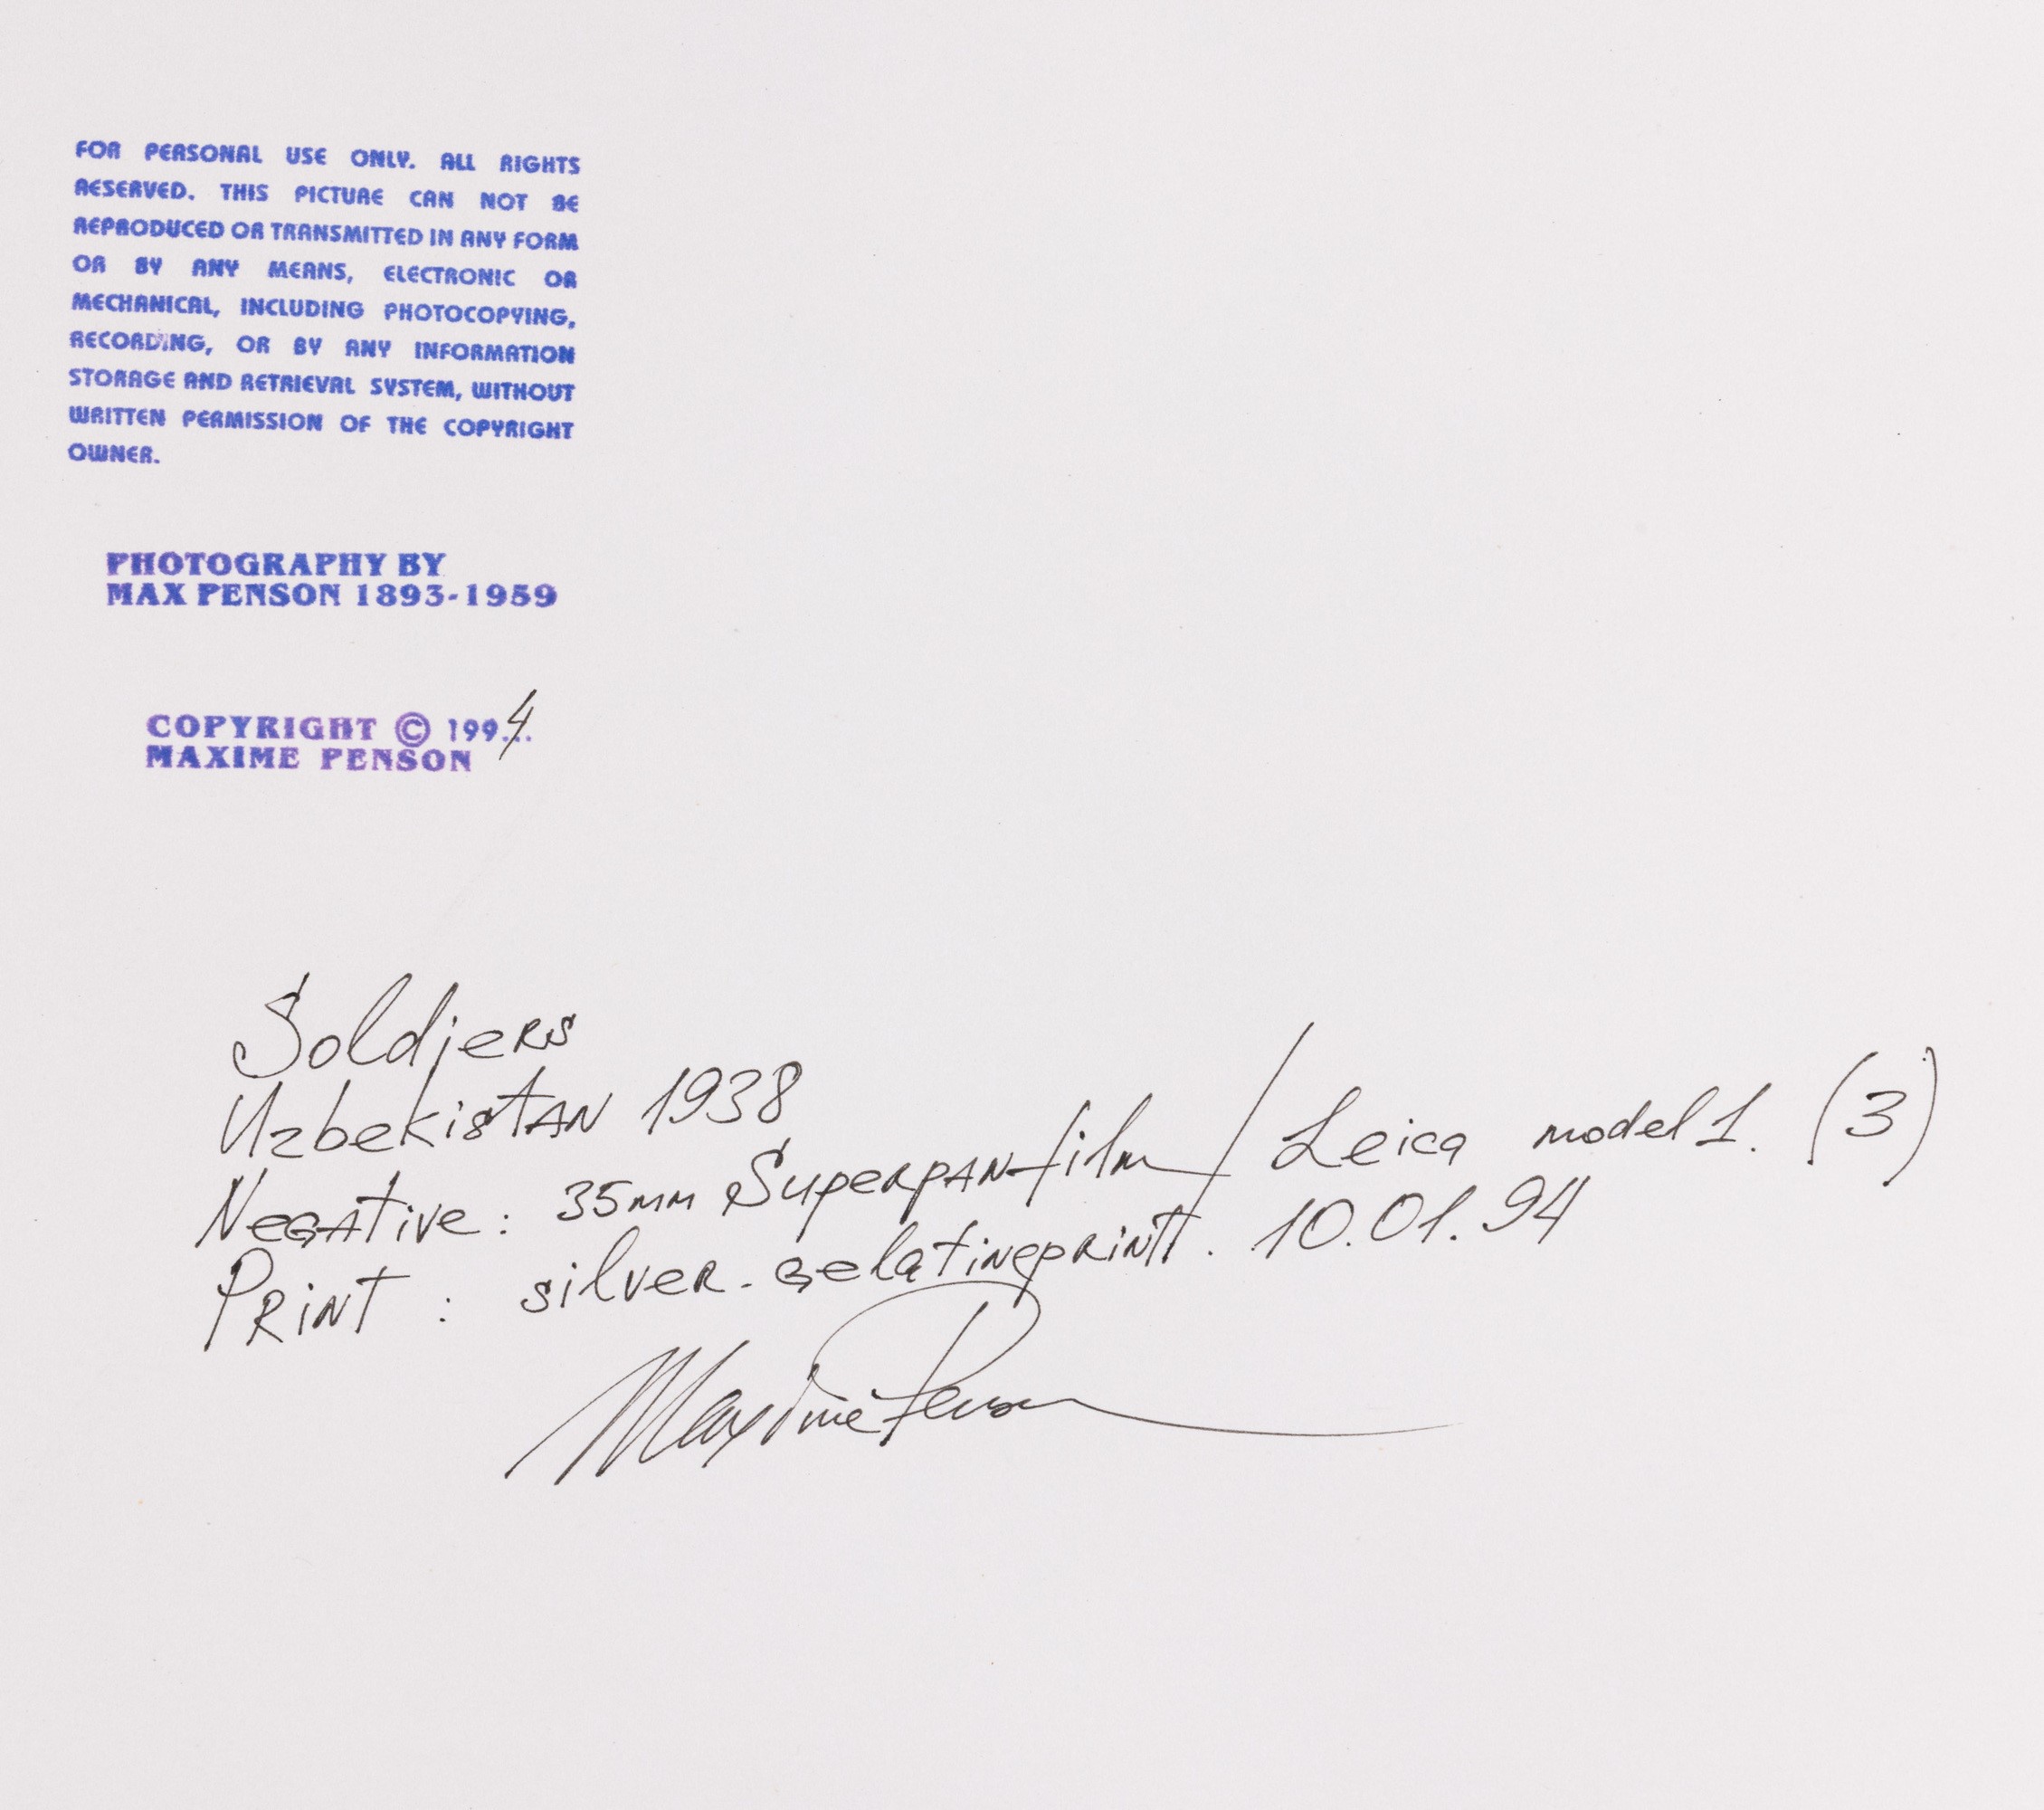 FOR PERSONAL USE ONLY. ALL RIGHTS
RESERVED. THIS PICTURE CAN NOT BE
REPRODUCED OR TRANSMITTED IN ANY FORM
OR BY ANY MEANS, ELECTRONIC OR
MECHANICAL, INCLUDING PHOTOCOPYING,
RECORDING, OR BY ANY INFORMATION
STORAGE AND RETRIEVAL SYSTEM, WITHOUT
WRITTEN PERMISSION OF THE COPYRIGHT
OWNER.
PHOTOGRAPHY BY
MAX PENSON 1893-1959
COPYRIGHT © 1994
MAXIME PENSON
Soldjers
Uzbekistan 1938
Negative: 35mm Superpanfilm / Leica model 1. (3)
Print : silver-gelatineprint. 10.01.94
Maxime Penson